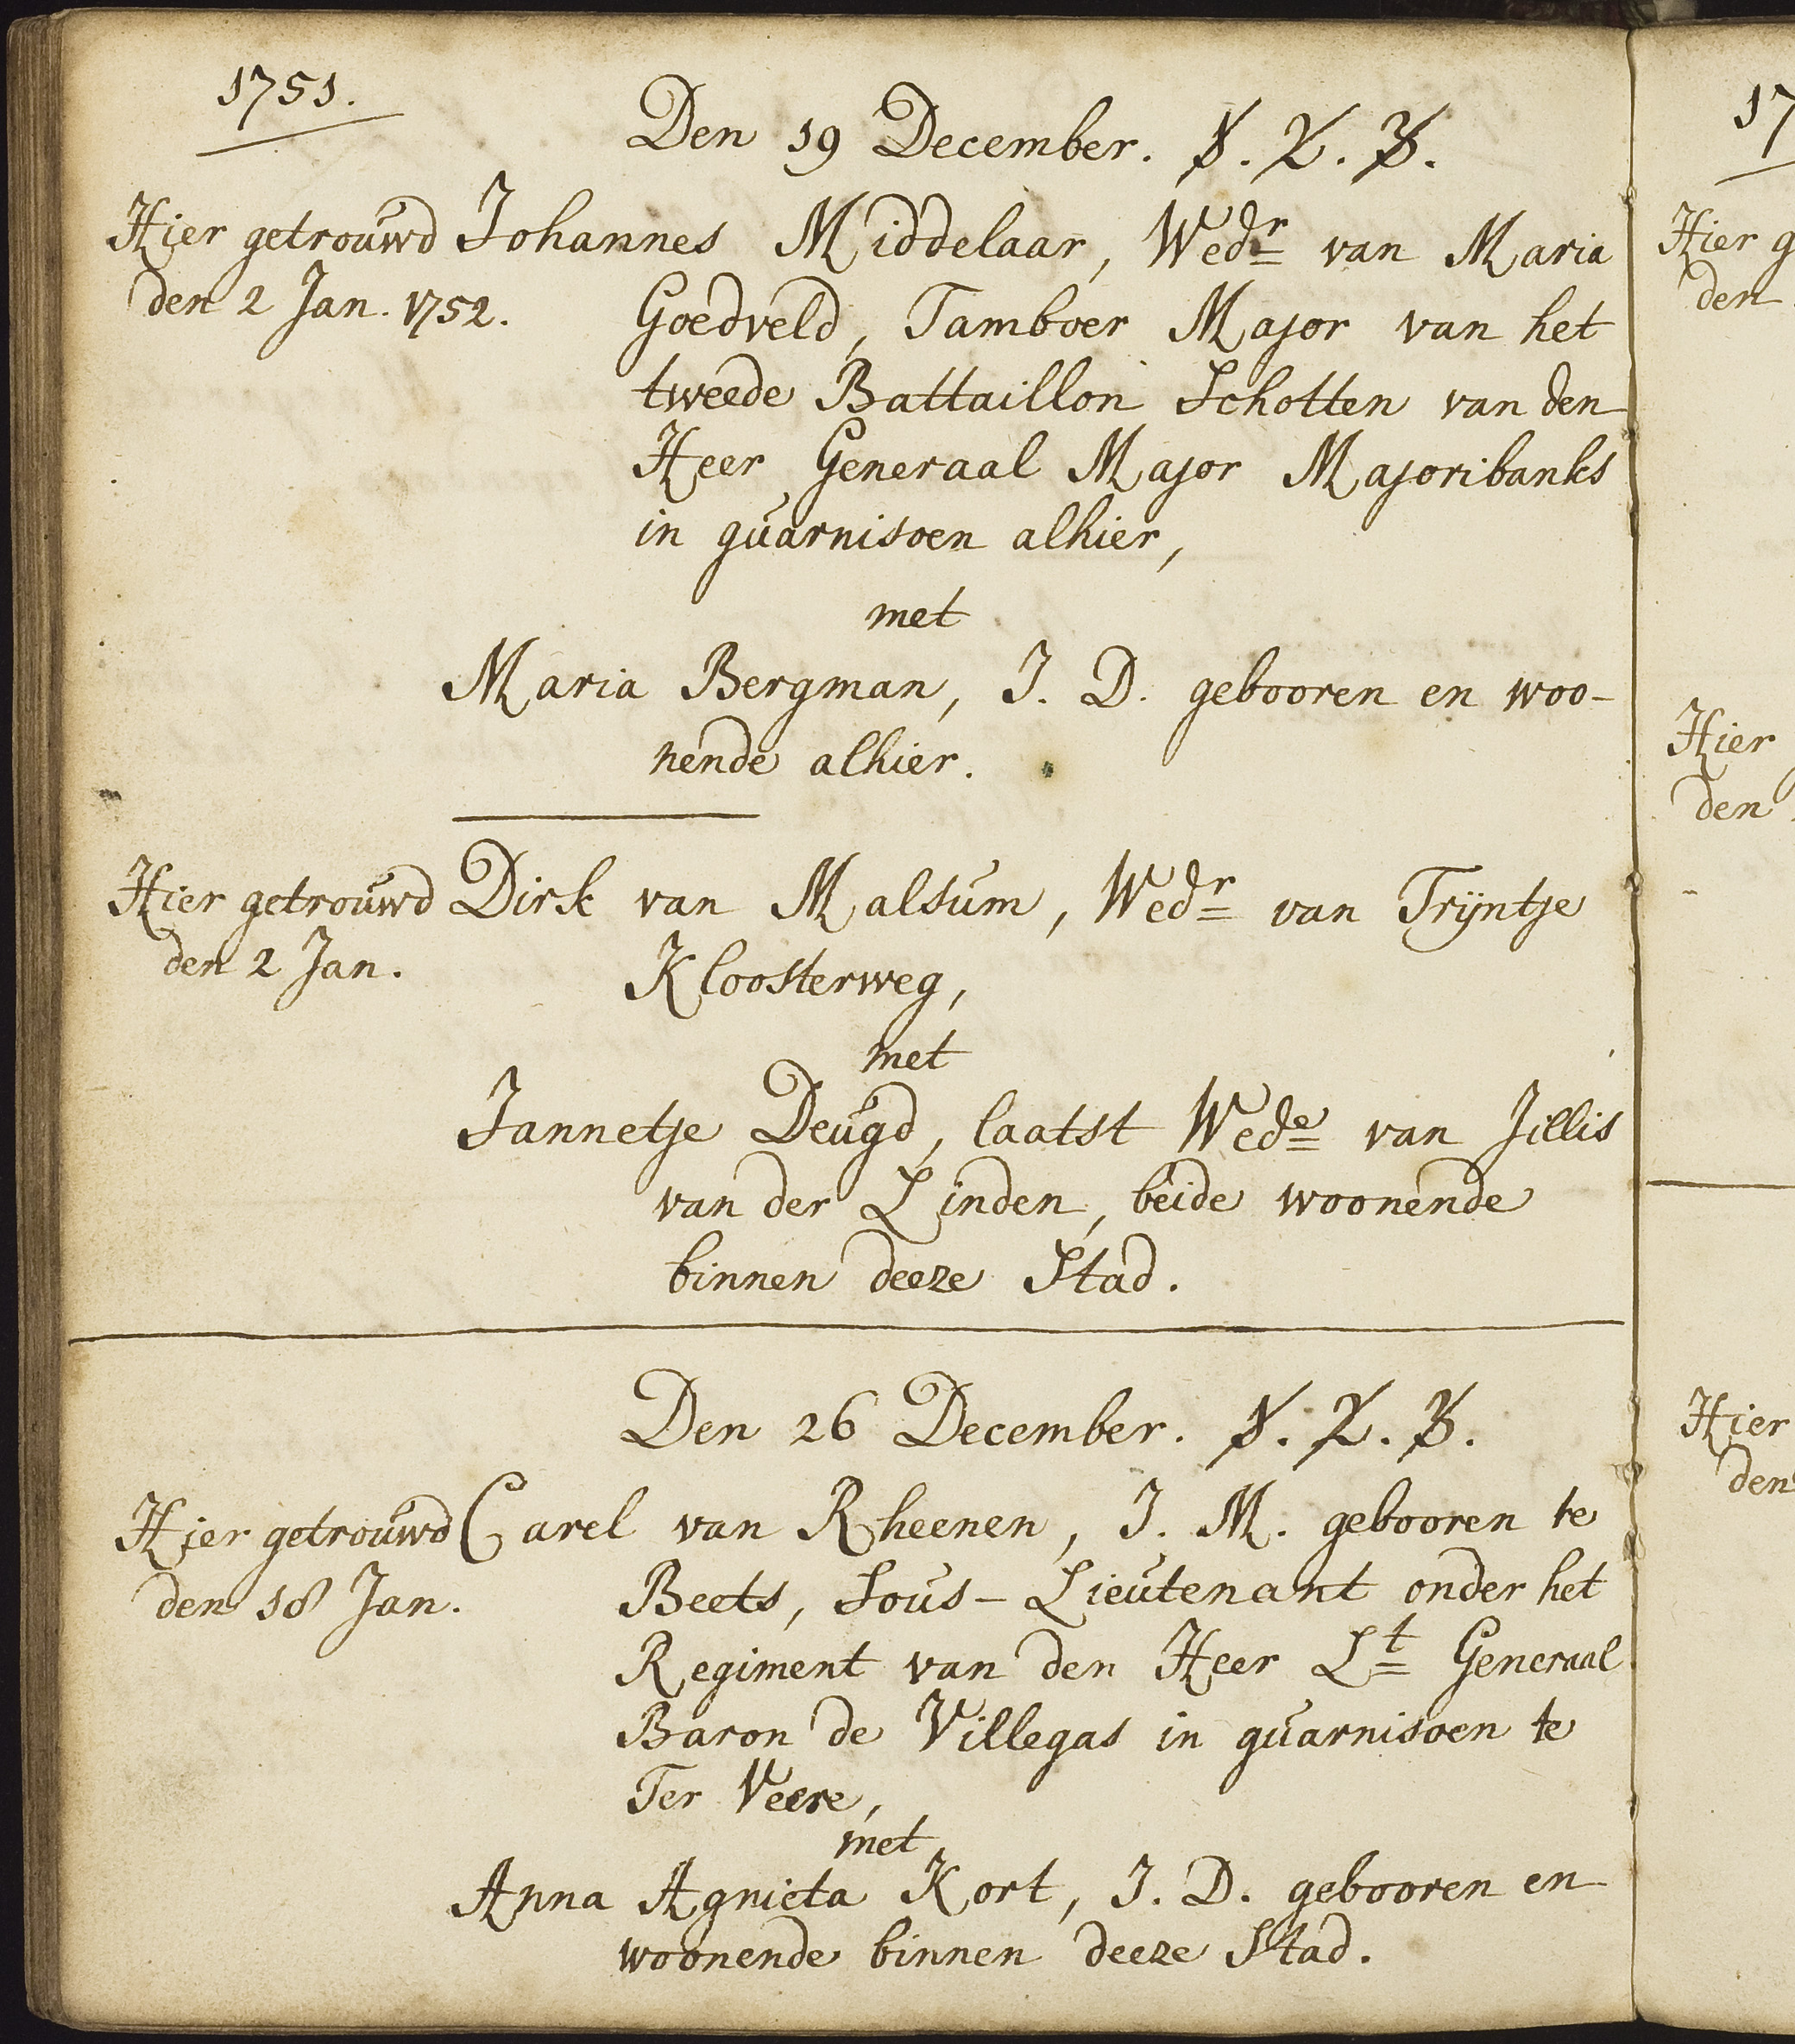 1751.
Den 19 December. 1. 2. 3.
Hier getrouwd Johannes Middelaar, Wedr van Maria
den 2 Jan. 1752. Goedveld, Tamboer Major van het
tweede Battaillon Schotten van den
Heer Generaal Major Majoribanks
in guarnisoen alhier,
met
Maria Bergman, J. D. gebooren en woo-
nende alhier.
Hier getrouwd Dirk van Malsum, Wedr van Trijntje
den 2 Jan. Kloosterweg,
met
Jannetje Deugd, laatst Wede van Jillis
van der Linden, beide woonende
binnen deeze Stad.
Den 26 December. 1. 2. 3.
Hier getrouwd Carel van Rheenen, J. M. gebooren te
den 18 Jan. Beets, Sous-Lieutenant onder het
Regiment van den Heer Lt Generaal
Baron de Villegas in guarnisoen te
Ter Veere,
met
Anna Agnieta Kort, J. D. gebooren en
woonende binnen deeze Stad.
17
Hier g
den
Hier
den
Hier
den